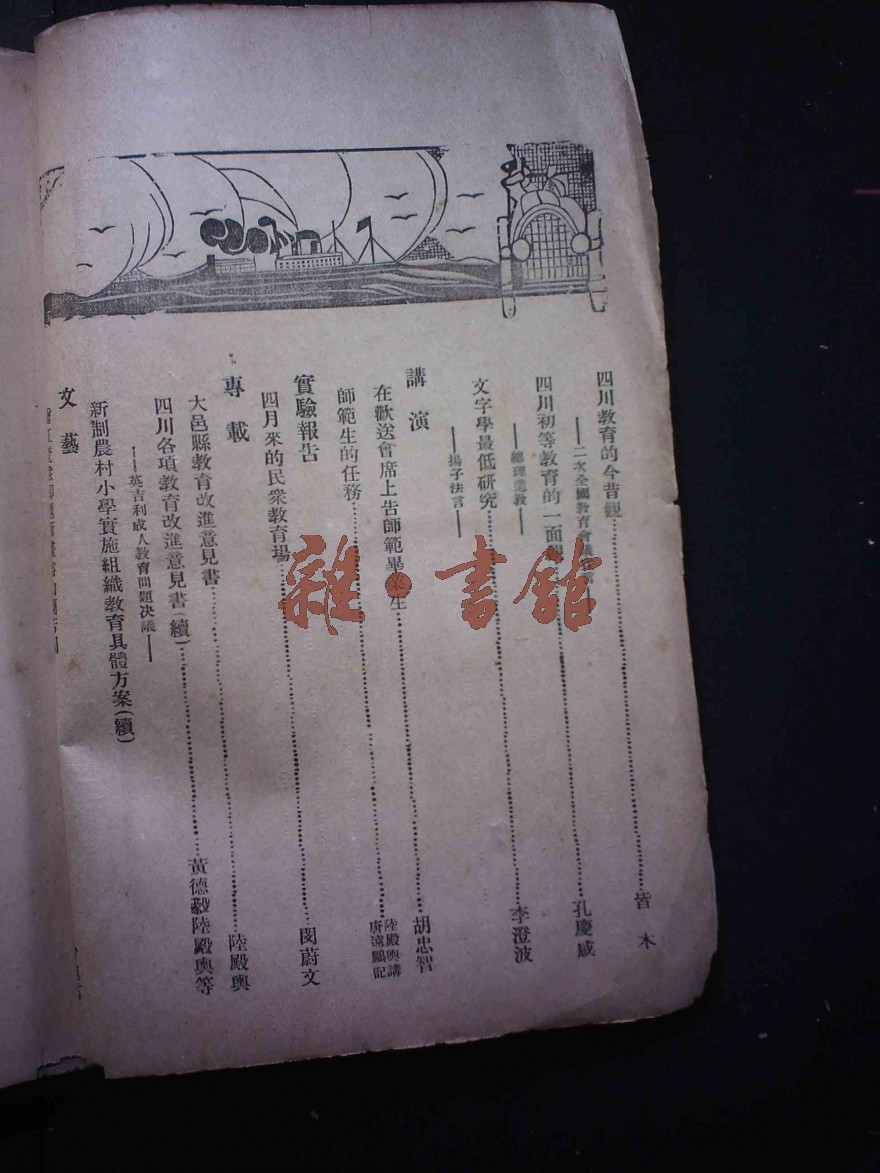 四川教育的今昔觀……皆木
——二次全國教育會
四川初等教育的一面觀……孔慶咸
——總理遺教——
文字學最低研究……李澄波
——揚子法言——
講演
在歡送會席上告師範畢業生……胡忠智
師範生的任務……陸殿輿講 唐遠鵬記
實驗報告
四月來的民衆教育場……閔蔚文
專載
大邑縣教育改進意見書……陸殿輿
四川各項教育改進意見書(續)……黃德毅陸殿輿等
——英吉利成人教育問題決議——
新制農村小學實施組織教育具體方案(續)
文藝
雜·書館